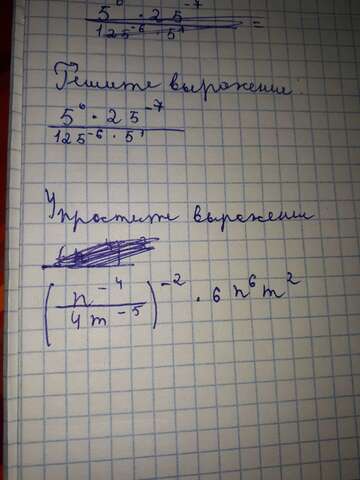 5⁶ · 25⁻⁷
125⁻⁶ · 5¹ =
Решите выражение:
5⁶ · 25⁻⁷
125⁻⁶ · 5¹
Упростите выражении
(n⁻⁴ / 4m⁻⁵)⁻² · 6n⁶m²